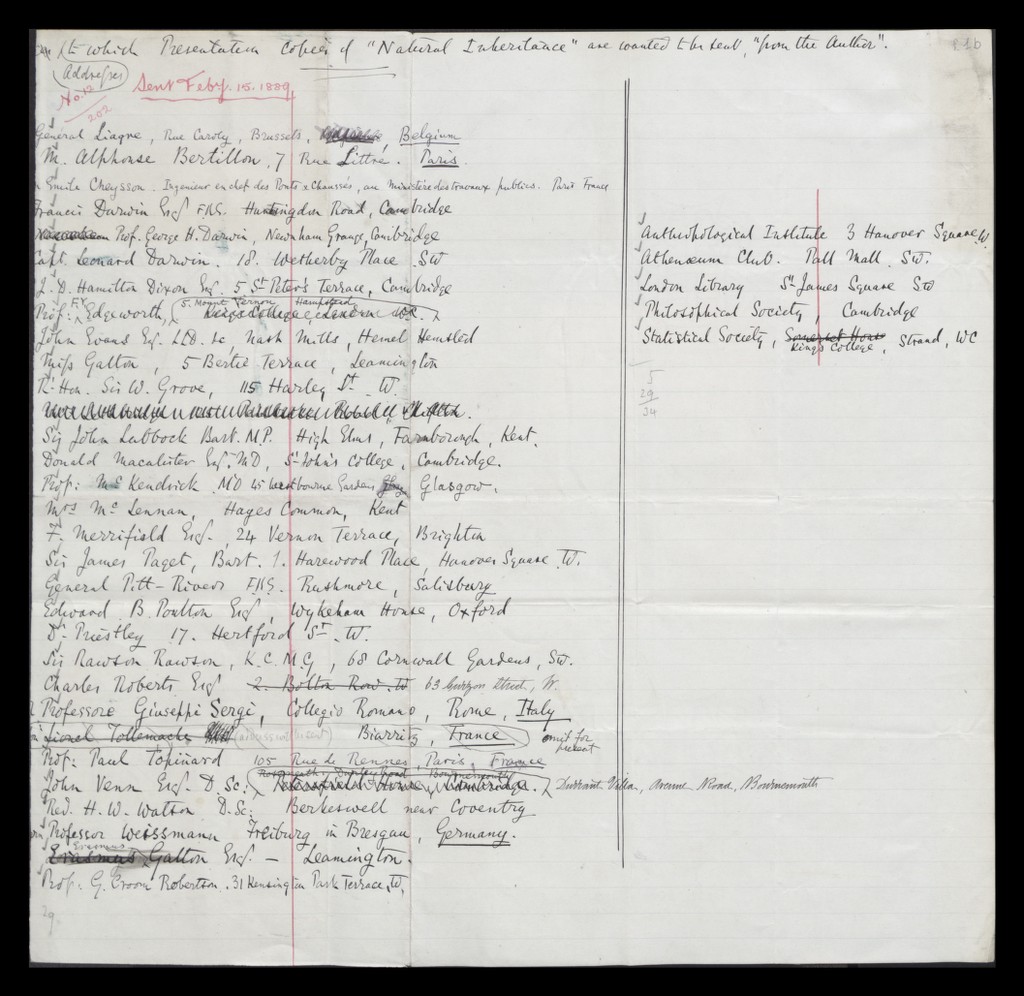 to which Presentation Copies of "Natural Inheritance" are wanted to be sent, "from the Author".
Addresses
No. 12
202
Sent Feby. 15. 1889
General Liagre, Rue Caroly, Brussels, Belgium
M. Alphonse Bertillon, 7 Rue Littré. Paris.
Emile Cheysson. Ingenieur en chef des Ponts x Chaussés, au Ministère des travaux publics. Paris France
Francis Darwin Esq FRS. Huntingdon Road, Cambridge
Prof. George H. Darwin, Newnham Grange, Cambridge
Capt. Leonard Darwin. 18. Wetherby Place SW
J. D. Hamilton Dixon Esq. 5 St Peter's Terrace, Cambridge
5. Mount Vernon Hampstead
Prof: F.Y. Edgeworth, Kings College, London WC.
John Evans Esq. LLD. &c, Nash Mills, Hemel Hemsted
Miss Galton, 5 Bertie Terrace, Leamington
Rt Hon. Sir W. Grove, 115 Harley St. W.
Sir John Lubbock Bart. M.P. High Elms, Farnborough, Kent.
Donald Macalister Esq. MD, St John's College, Cambridge.
Prof: Mc Kendrick MD 45 Westbourne Gardens Glasgow.
Mrs Mc Lennan, Hayes Common, Kent
F. Merrifield Esq., 24 Vernon Terrace, Brighton
Sir James Paget, Bart. 1. Harewood Place, Hanover Square W.
General Pitt-Rivers FRS. Rushmore, Salisbury
Edward B. Poulton Esq, Wykeham House, Oxford
Dr Priestley 17. Hertford St. W.
Sir Rawson Rawson, K.C.M.G, 68 Cornwall Gardens, SW.
Charles Roberts Esq 2. Bolton Row. W 63 Curzon Street, W.
Professore Giuseppi Sergi, Collegio Romano, Rome, Italy
Lionel Tollemache Biarritz, France omit for present
Prof: Paul Topinard 105 Rue de Rennes, Paris, France
John Venn Esq. D.Sc: Petersfield House, Cambridge. Durrant Villa, Avenue Road, Bournemouth
Rev. H. W. Watson D.Sc: Berkeswell near Coventry
Professor Weissmann Freiburg in Bresgau, Germany.
Erasmus
Erasmus Galton Esq. – Leamington.
Prof: G. Croom Robertson. 31 Kensington Park Terrace, W.
29
Anthropological Institute 3 Hanover Square W.
Athenæum Club. Pall Mall. SW.
London Library St James Square SW
Philosophical Society, Cambridge
Statistical Society, Somerset House Kings College, Strand, WC
5
29
34